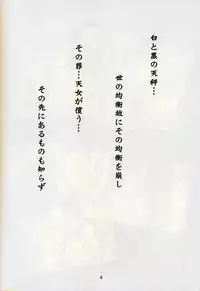 白と黒の天秤…
世の均衡故にその均衡を崩し
その罪…天女が償う…
その先にあるものも知らず